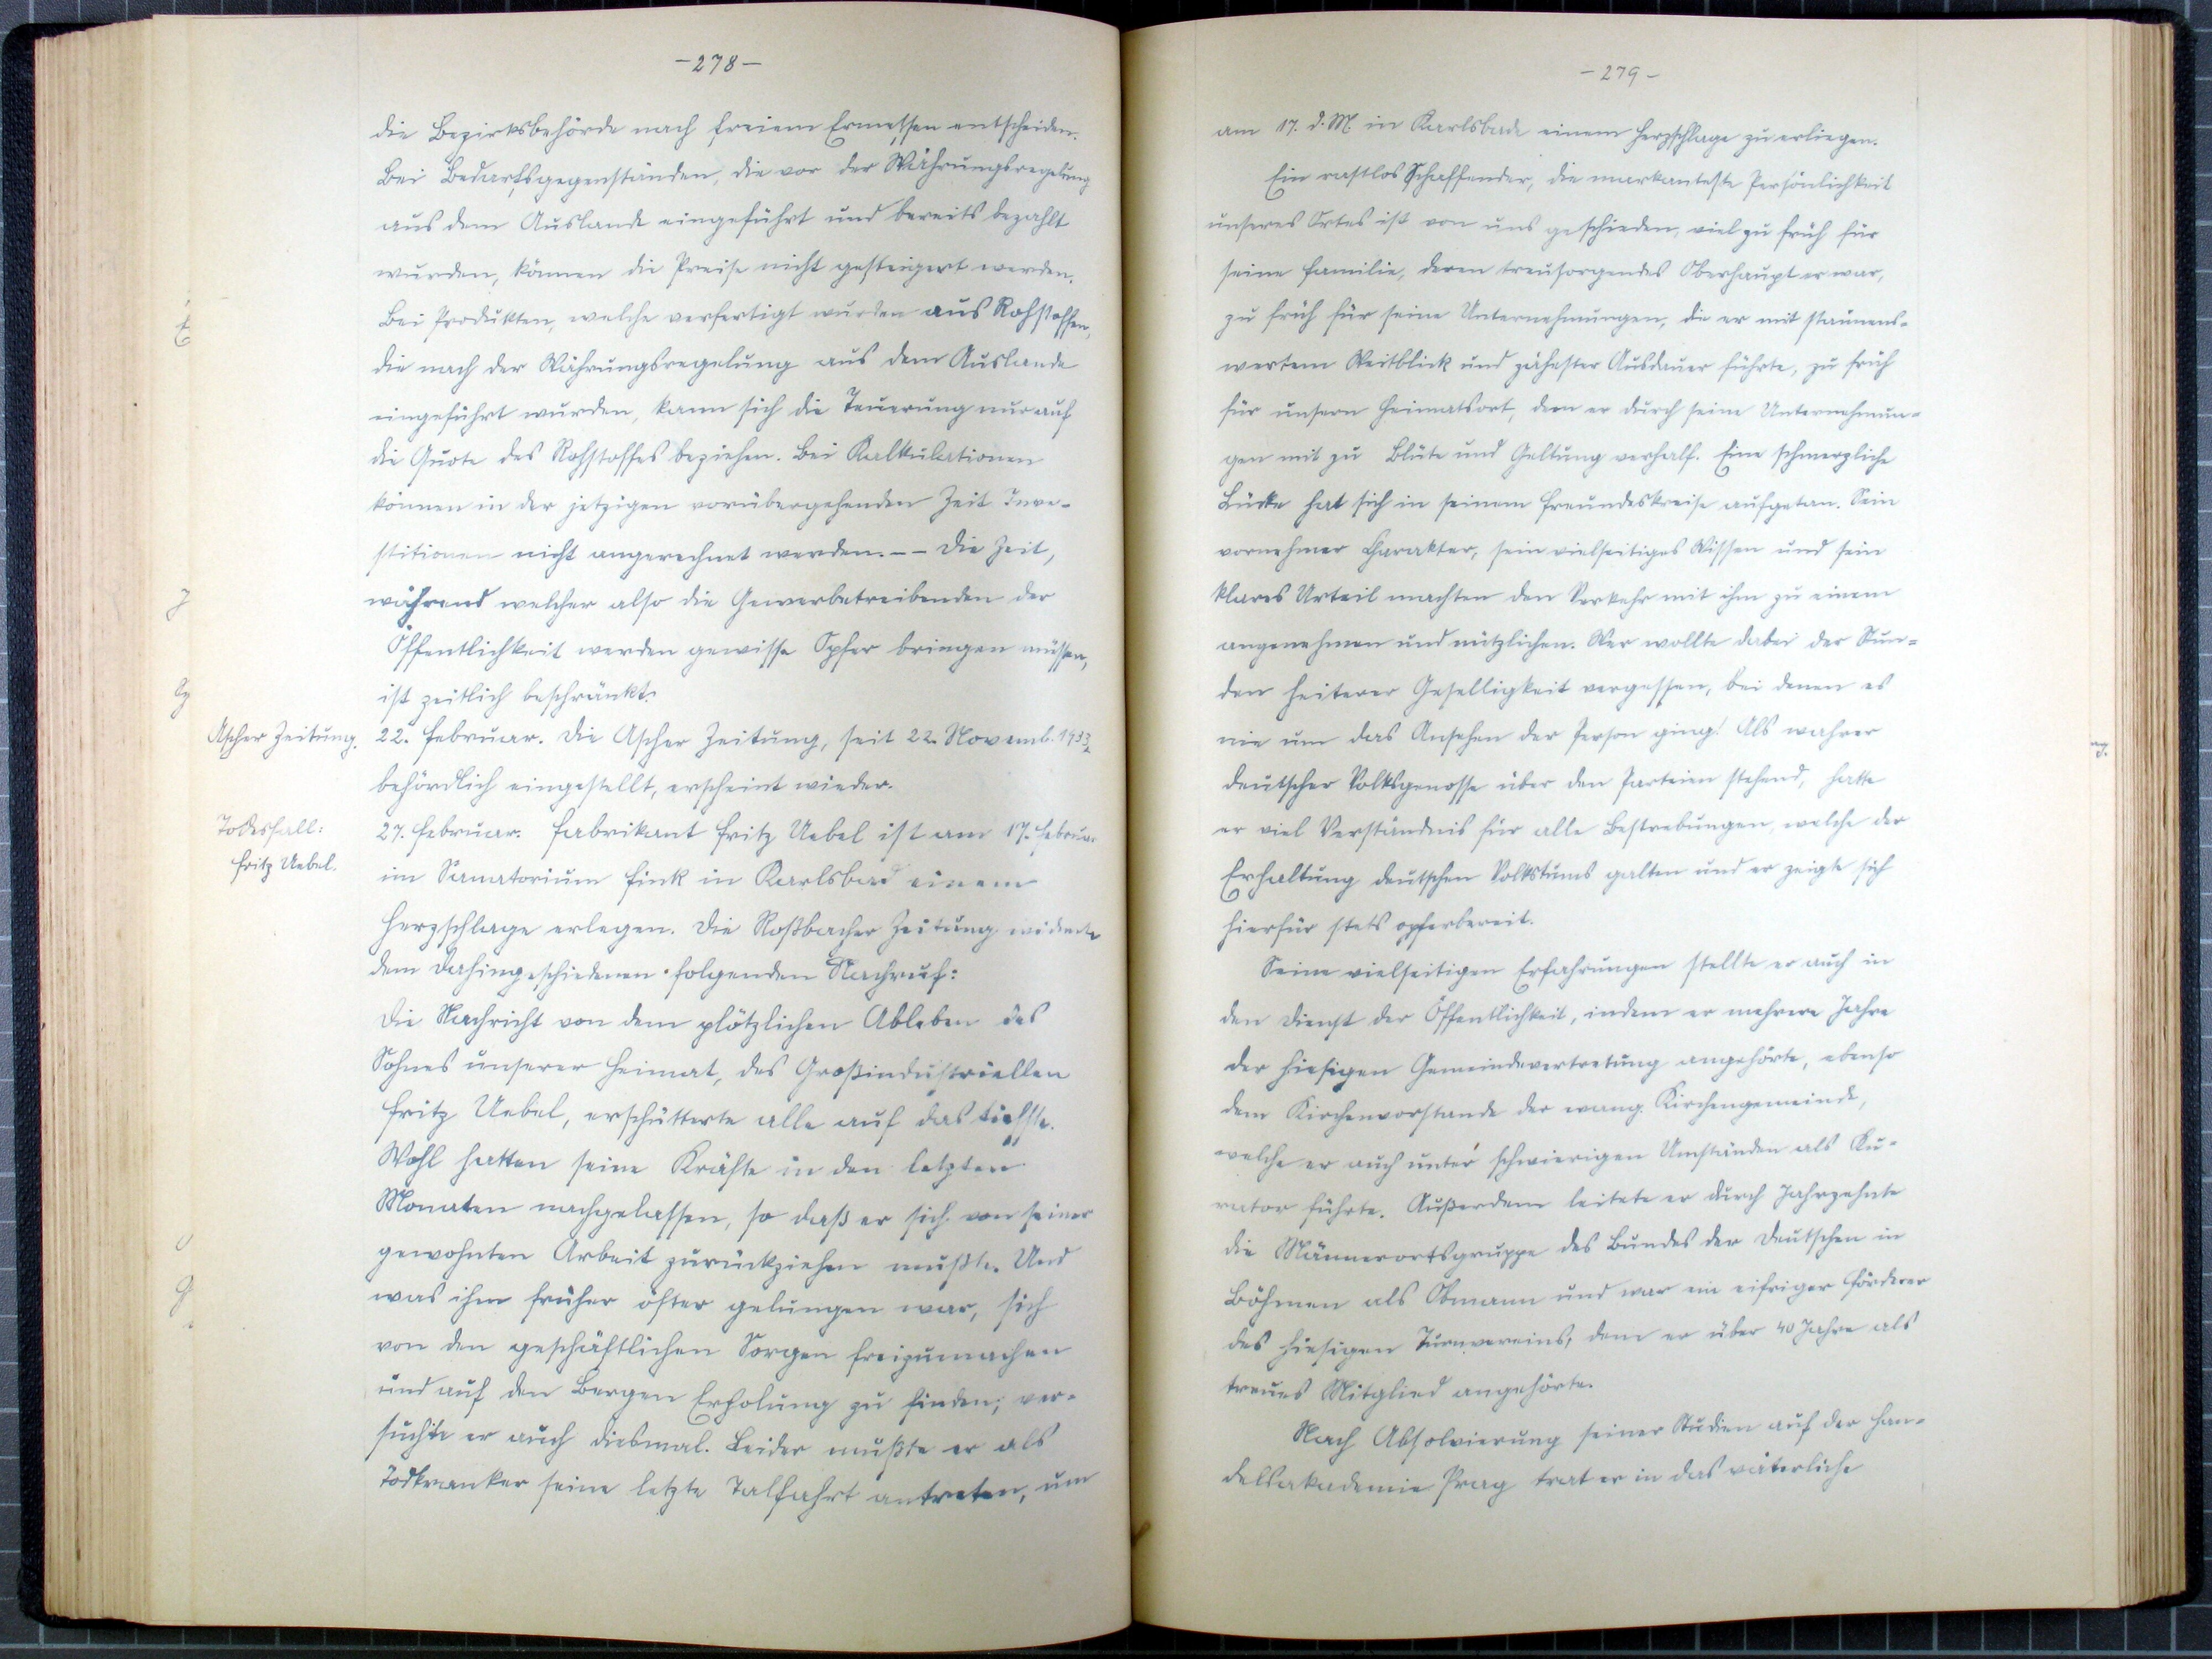 -278-
die Bezirksbehörde nach freiem Ermessen entscheiden.
Bei Bedarfsgegenständen, die vor der Währungsregelung
aus dem Auslande eingeführt und bereits bezahlt
wurden, können die Preise nicht gesteigert werden.
Bei Produkten, welche verfertigt wurden aus Rohstoffen,
die nach der Währungsregelung aus dem Auslande
eingeführt wurden, kann sich die Teuerung nur auf
die Quote des Rohstoffes beziehen. Bei Kalkulationen
können in der jetzigen vorübergehenden Zeit Inve-
stitionen nicht angerechnet werden. -- Die Zeit,
während welcher also die Gewerbetreibenden der
Öffentlichkeit werden gewisse Opfer bringen müssen,
ist zeitlich beschränkt.
Ascher Zeitung.
22. Februar. Die Ascher Zeitung, seit 22. Novemb. 1933
behördlich eingestellt, erscheint wieder.
Todesfall:
Fritz Uebel.
27. Februar. Fabrikant Fritz Uebel ist am 17. Februar
im Sanatorium Fink in Karlsbad einem
Herzschlage erlegen. Die Roßbacher Zeitung widmete
dem Dahingeschiedenen folgenden Nachruf:
Die Nachricht von dem plötzlichen Ableben des
Sohnes unserer Heimat, des Großindustriellen
Fritz Uebel, erschütterte alle auf das tiefste.
Wohl hatten seine Kräfte in den letzten
Monaten nachgelassen, so daß er sich von seiner
gewohnten Arbeit zurückziehen mußte. Und
was ihm früher öfter gelungen war, sich
von den geschäftlichen Sorgen freizumachen
und auf den Bergen Erholung zu finden, ver-
suchte er auch diesmal. Leider mußte er als
Todkranker seine letzte Talfahrt antreten, um
-279-
am 17. d. M. in Karlsbade einem Herzschlage zu erliegen.
Ein rastlos Schaffender, die markanteste Persönlichkeit
unseres Ortes ist von uns geschieden, viel zu früh für
seine Familie, deren treusorgendes Oberhaupt er war,
zu früh für seine Unternehmungen, die er mit staunens-
wertem Weitblick und zähester Ausdauer führte, zu früh
für unsern Heimatsort, dem er durch seine Unternehmun-
gen mit zu Blüte und Geltung verhalf. Eine schmerzliche
Lücke hat sich in seinem Freundeskreise aufgetan. Sein
vornehmer Charakter, sein vielseitiges Wissen und sein
klares Urteil machten den Verkehr mit ihm zu einem
angenehmen und nützlichen. Wer wollte dabei der Stun-
den heiterer Geselligkeit vergessen, bei denen es
nie um das Ansehen der Person ging! Als wahrer
deutscher Volksgenosse über den Parteien stehend, hatte
er viel Verständnis für alle Bestrebungen, welche der
Erhaltung deutschen Volkstums galten und er zeigte sich
hierfür stets opferbereit.
Seine vielseitigen Erfahrungen stellte er auch in
den Dienst der Öffentlichkeit, indem er mehrere Jahre
der hiesigen Gemeindevertretung angehörte, ebenso
dem Kirchenvorstande der evang. Kirchengemeinde,
welche er auch unter schwierigen Umständen als Ku-
rator führte. Außerdem leitete er durch Jahrzehnte
die Männerortsgruppe des Bundes der Deutschen in
Böhmen als Obmann und war ein eifriger Förderer
des hiesigen Turnvereins, dem er über 40 Jahre als
treues Mitglied angehörte.
Nach Absolvierung seiner Studien auf der Han-
delsakademie Prag trat er in das väterliche